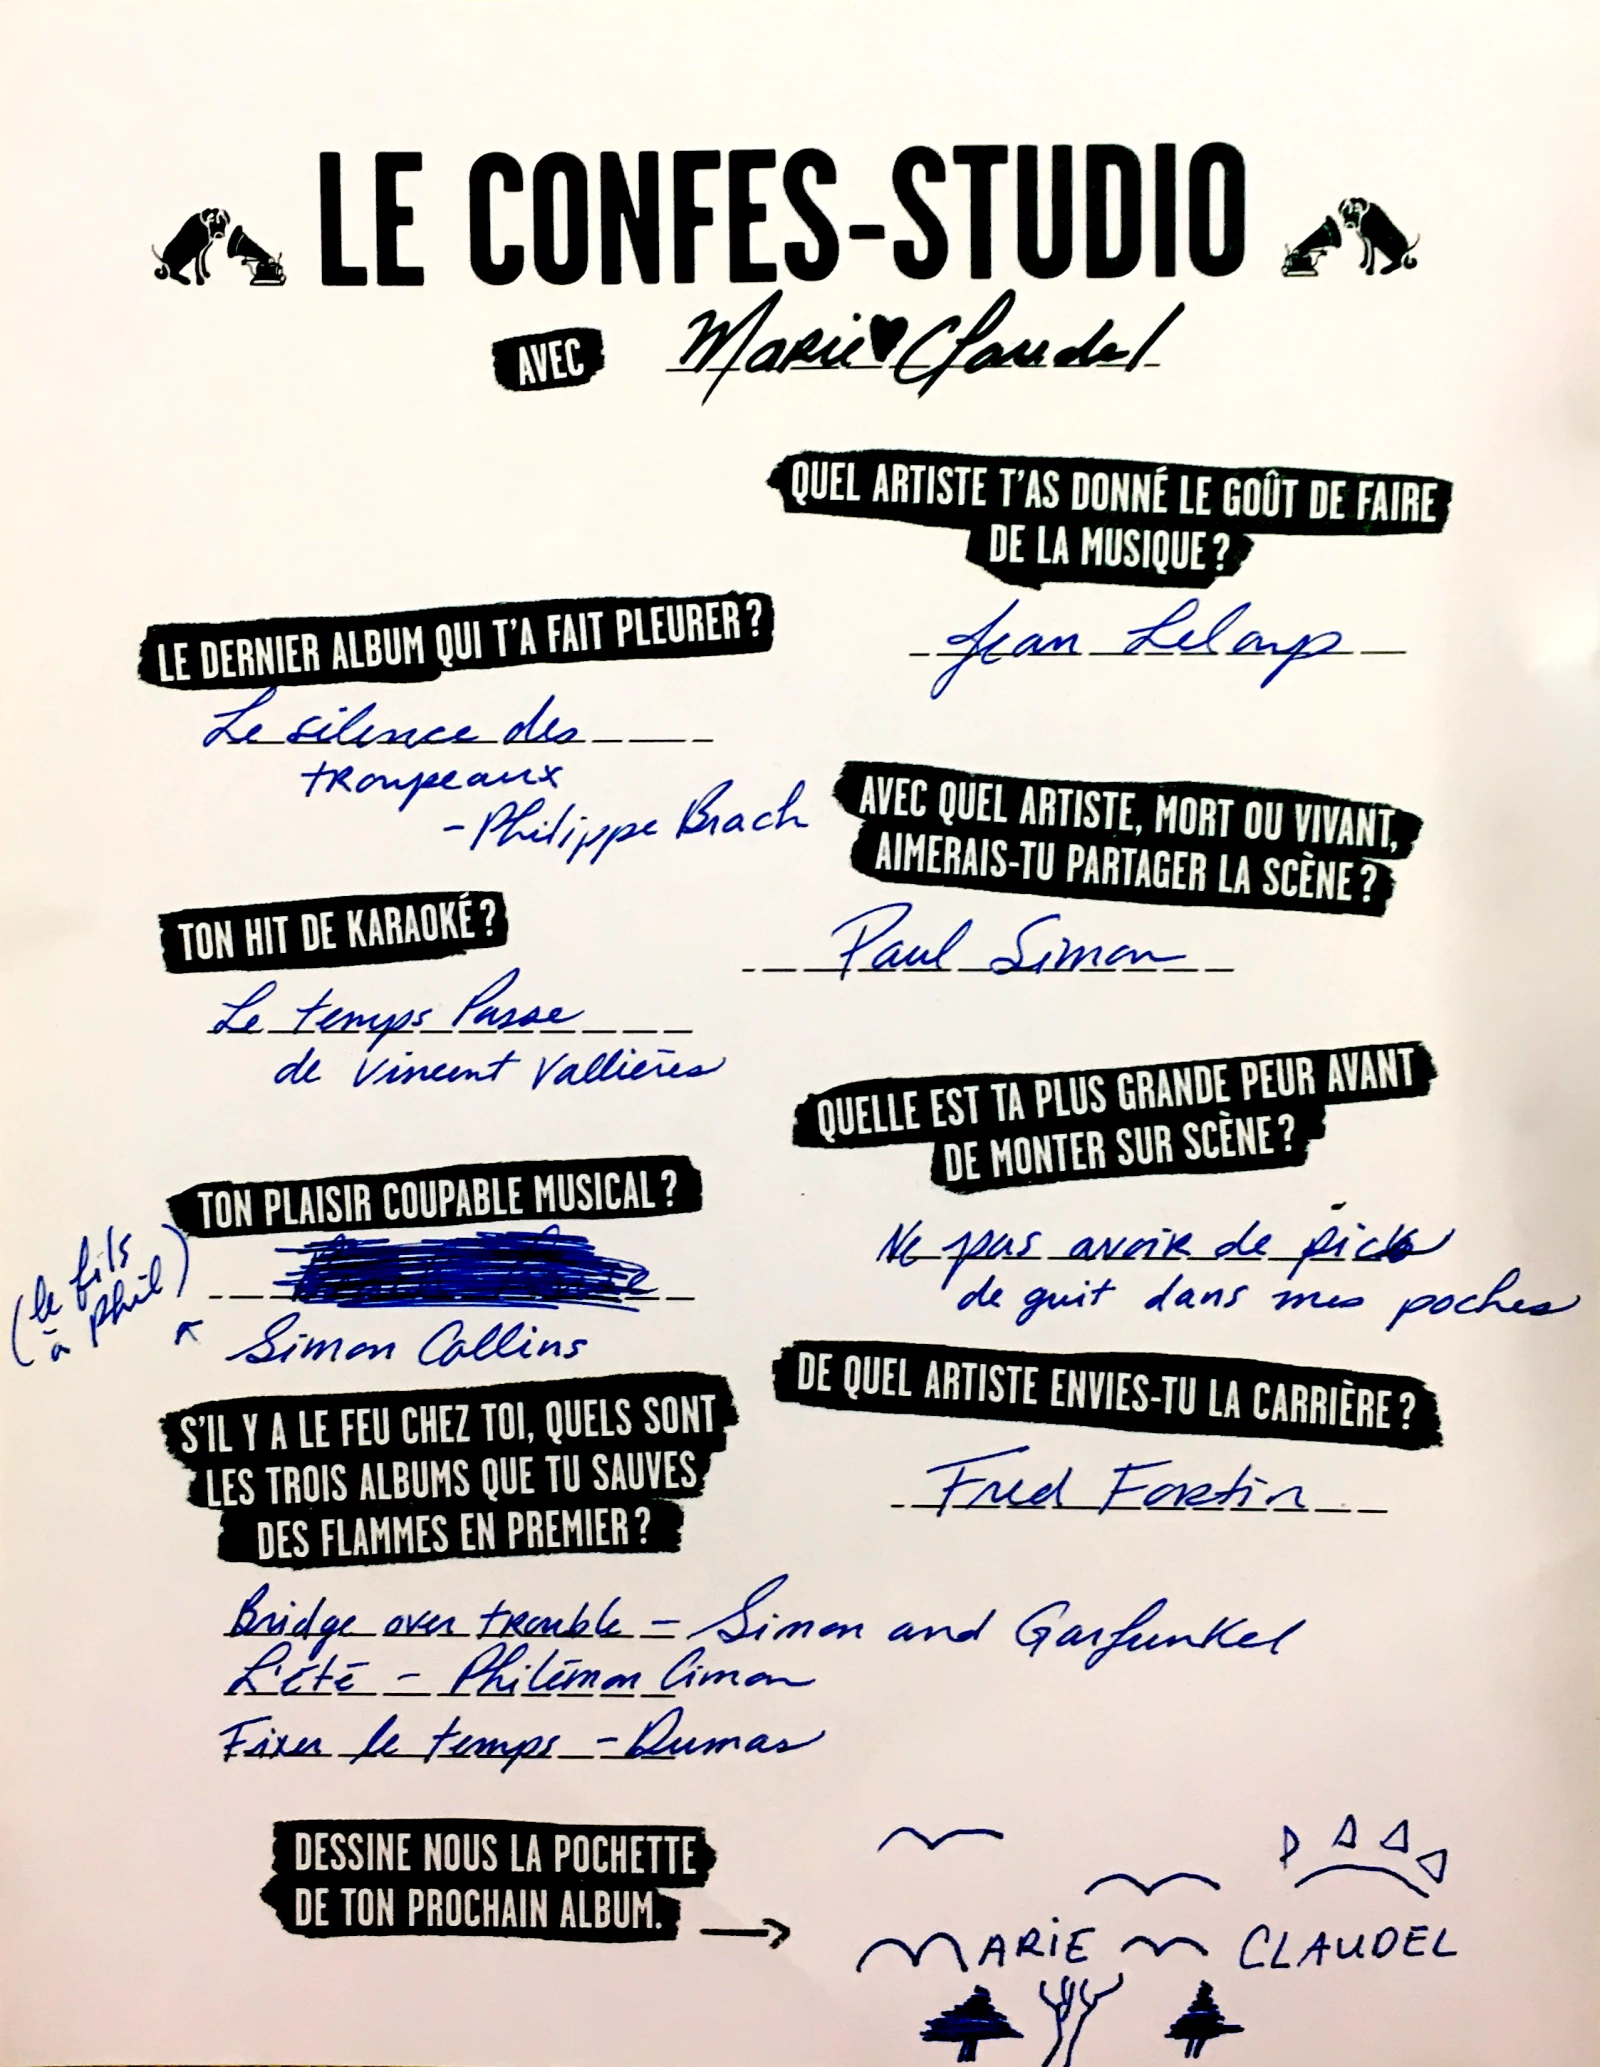 LE CONFES-STUDIO
AVEC Marie♥Claudel
QUEL ARTISTE T'AS DONNÉ LE GOÛT DE FAIRE
DE LA MUSIQUE ?
Jean Leloup
LE DERNIER ALBUM QUI T'A FAIT PLEURER ?
Le silence des
troupeaux
- Philippe Brach
AVEC QUEL ARTISTE, MORT OU VIVANT,
AIMERAIS-TU PARTAGER LA SCÈNE ?
Paul Simon
TON HIT DE KARAOKÉ ?
Le temps Passe
de Vincent Vallières
QUELLE EST TA PLUS GRANDE PEUR AVANT
DE MONTER SUR SCÈNE ?
Ne pas avoir de picks
de guit dans mes poches
TON PLAISIR COUPABLE MUSICAL ?
Simon Collins
(le fils
à phil)
DE QUEL ARTISTE ENVIES-TU LA CARRIÈRE ?
Fred Fortin
S'IL Y A LE FEU CHEZ TOI, QUELS SONT
LES TROIS ALBUMS QUE TU SAUVES
DES FLAMMES EN PREMIER ?
Bridge over trouble - Simon and Garfunkel
L'été - Philémon Cimon
Fixer le temps - Dumas
DESSINE NOUS LA POCHETTE
DE TON PROCHAIN ALBUM.
MARIE CLAUDEL